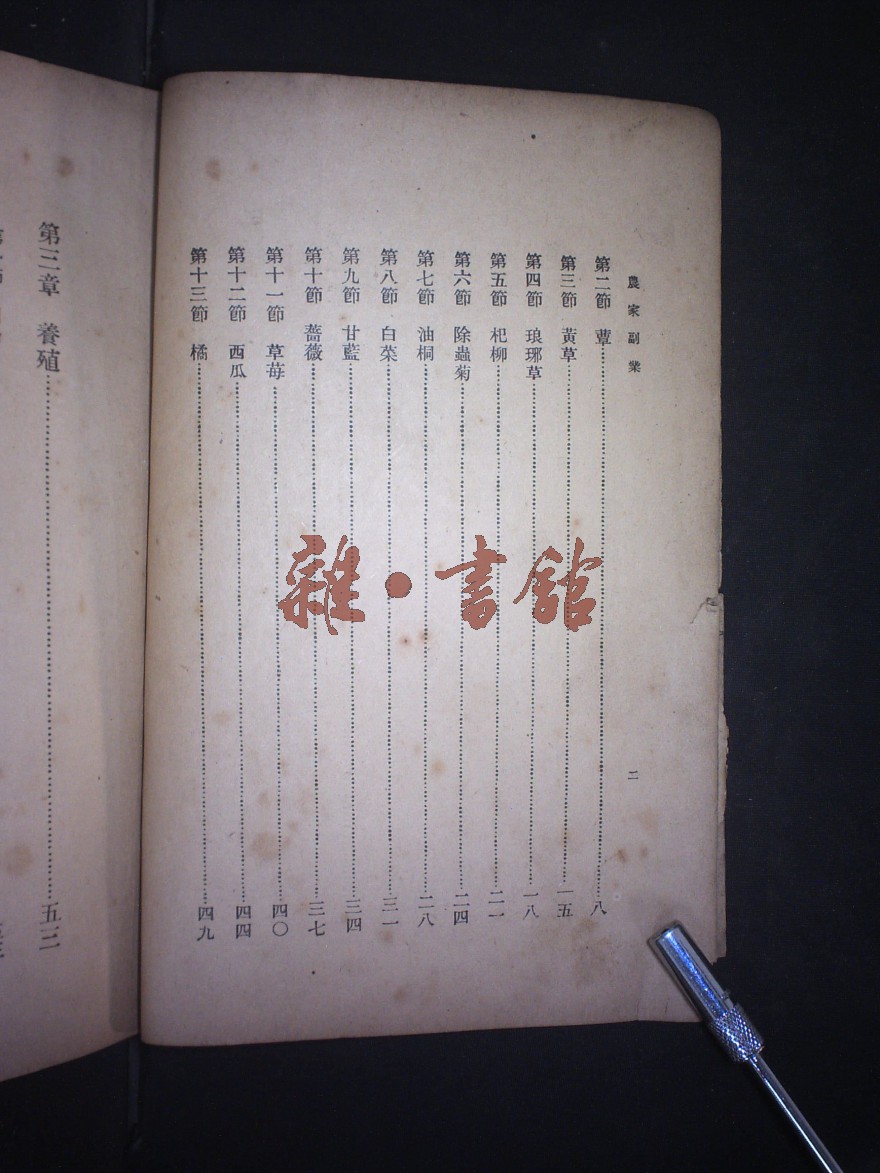 農家副業
二
第二節 蕈……八
第三節 黃草……一五
第四節 琅琊草……一八
第五節 杞柳……二一
第六節 除蟲菊……二四
第七節 油桐……二八
第八節 白菜……三一
第九節 甘藍……三四
第十節 薔薇……三七
第十一節 草莓……四〇
第十二節 西瓜……四四
第十三節 橘……四九
第三章 養殖……五三
雜·書館